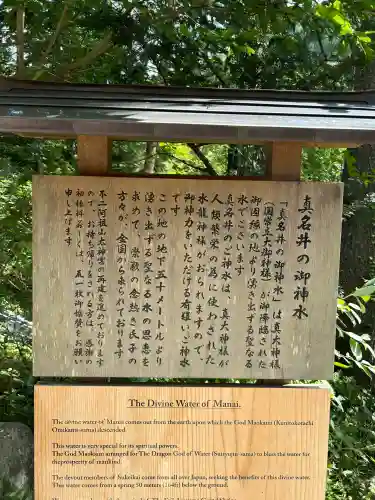 真名井の御神水
「真名井の御神水」は真大神様
(国常立大御神様)が御降臨された
御因縁の地より湧き出する聖なる
水でございます
真名井のご神水は、真大神様が
人類繁栄の為に使わされた
水龍神様がおられますので、
御神力をいただける有難いご神水
です
この地の地下五十メートルより
湧き出する聖なる水の恩恵を
求めて、崇敬の念熱き氏子の
方々が、全国から来られております
不二阿祖山太神宮の再建を進めております
ので、お持ち帰りをされる方は、感謝の
神様基本しくは、瓦一枚御協賛をお願い
申し上げます
The Divine Water of Manai.
The divine water of Manai comes out from the earth upon which the God Maokami (Kunitokotachi
Omikami-sama) descended.
This water is very special for its spiritual powers.
The God Maokami arranged for The Dragon God of Water (Suiryujin-sama) to blast the water for
the prosperity of mankind.
The devout members of Sukeikai come from all over Japan, seeking the benefits of this divine water.
This water comes from a spring 50 meters (164ft) below the ground.